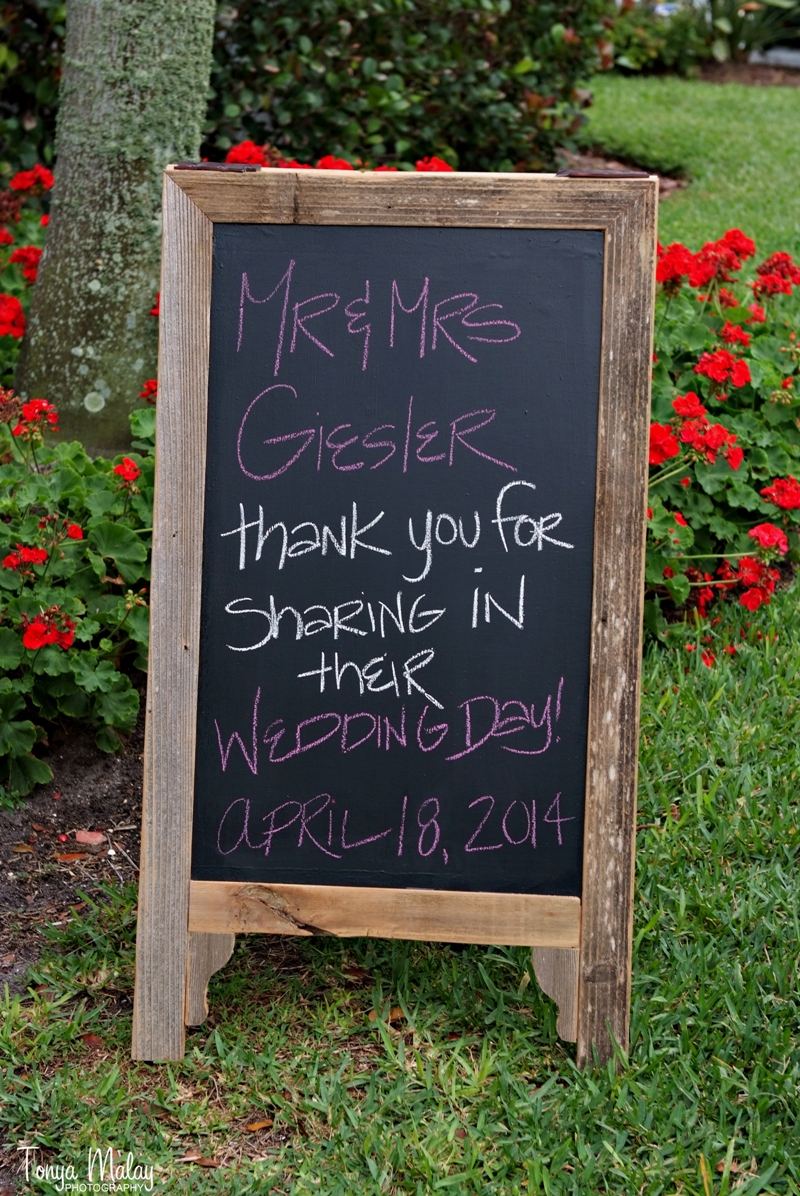 MR & MRS
GIESLER
thank you for
sharing in
their
WEDDING Day!
april 18, 2014
Tonya Malay
PHOTOGRAPHY